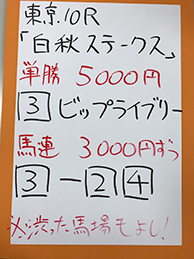 東京10R
「白秋ステークス」
単勝 5000円
3 ビップライブリー
馬連 3000円ずつ
3-24
※渋った馬場もよし!